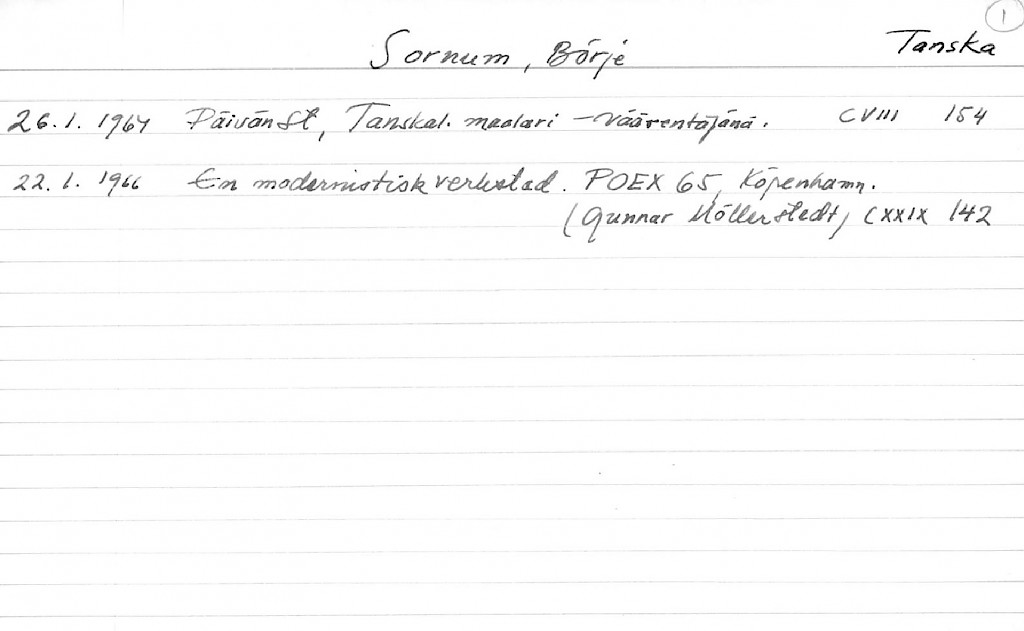 1
Sornum, Börje Tanska
26.1.1964 PäivänSt, Tanskal. maalari - väärentäjänä. CVIII 154
22.1.1966 En modernistisk verkstad. POEX 65, Köpenhamn.
(Gunnar Möllerstedt) CXXIX 142